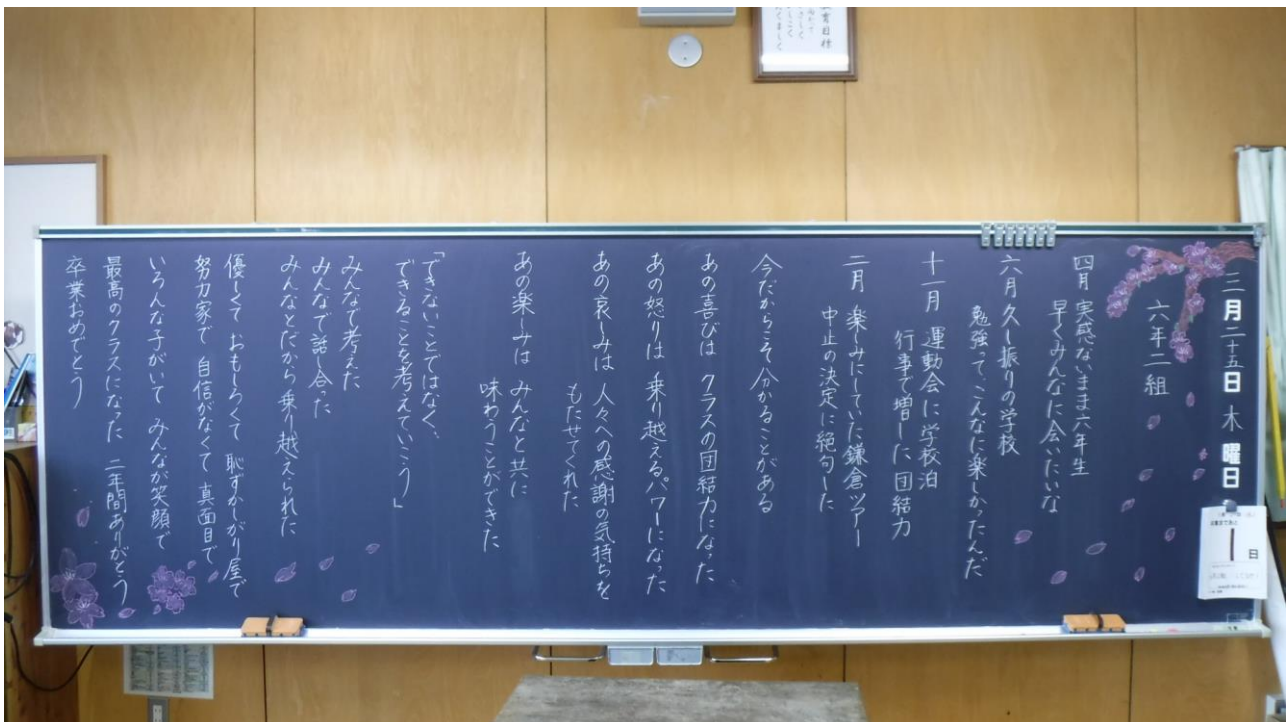 三月二十五日木曜日
六年二組
四月 実感ないまま六年生
早くみんなに会いたいな
六月 久し振りの学校
勉強って、こんなに楽しかったんだ
十一月 運動会に学校泊
行事で増した団結力
二月 楽しみにしていた鎌倉ツアー
中止の決定に絶句した
今だからこそ分かることがある
あの喜びは クラスの団結力になった
あの怒りは 乗り越えるパワーになった
あの哀しみは 人々への感謝の気持ちを
もたせてくれた
あの楽しみは みんなと共に
味わうことができた
「できないことではなく、
できることを考えていこう」
みんなで考えた
みんなで話し合った
みんなとだから乗り越えられた
優しくて おもしろくて 恥ずかしがり屋で
努力家で 自信がなくて 真面目で
いろんな子がいて みんなが笑顔で
最高のクラスになった 二年間ありがとう
卒業おめでとう
1
日
育目標